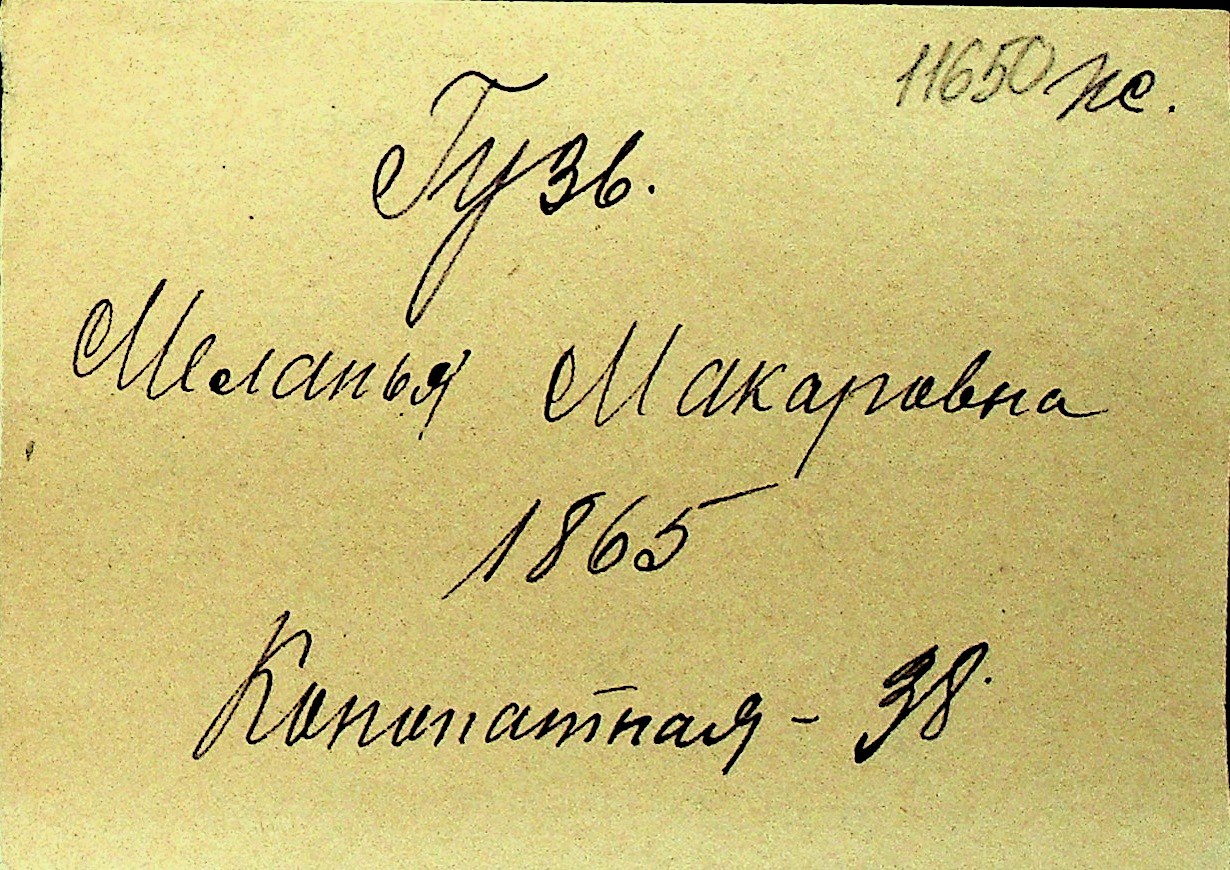 11650 пс.
Гузь.
Меланья Макаровна
1865
Конопатная - 38.